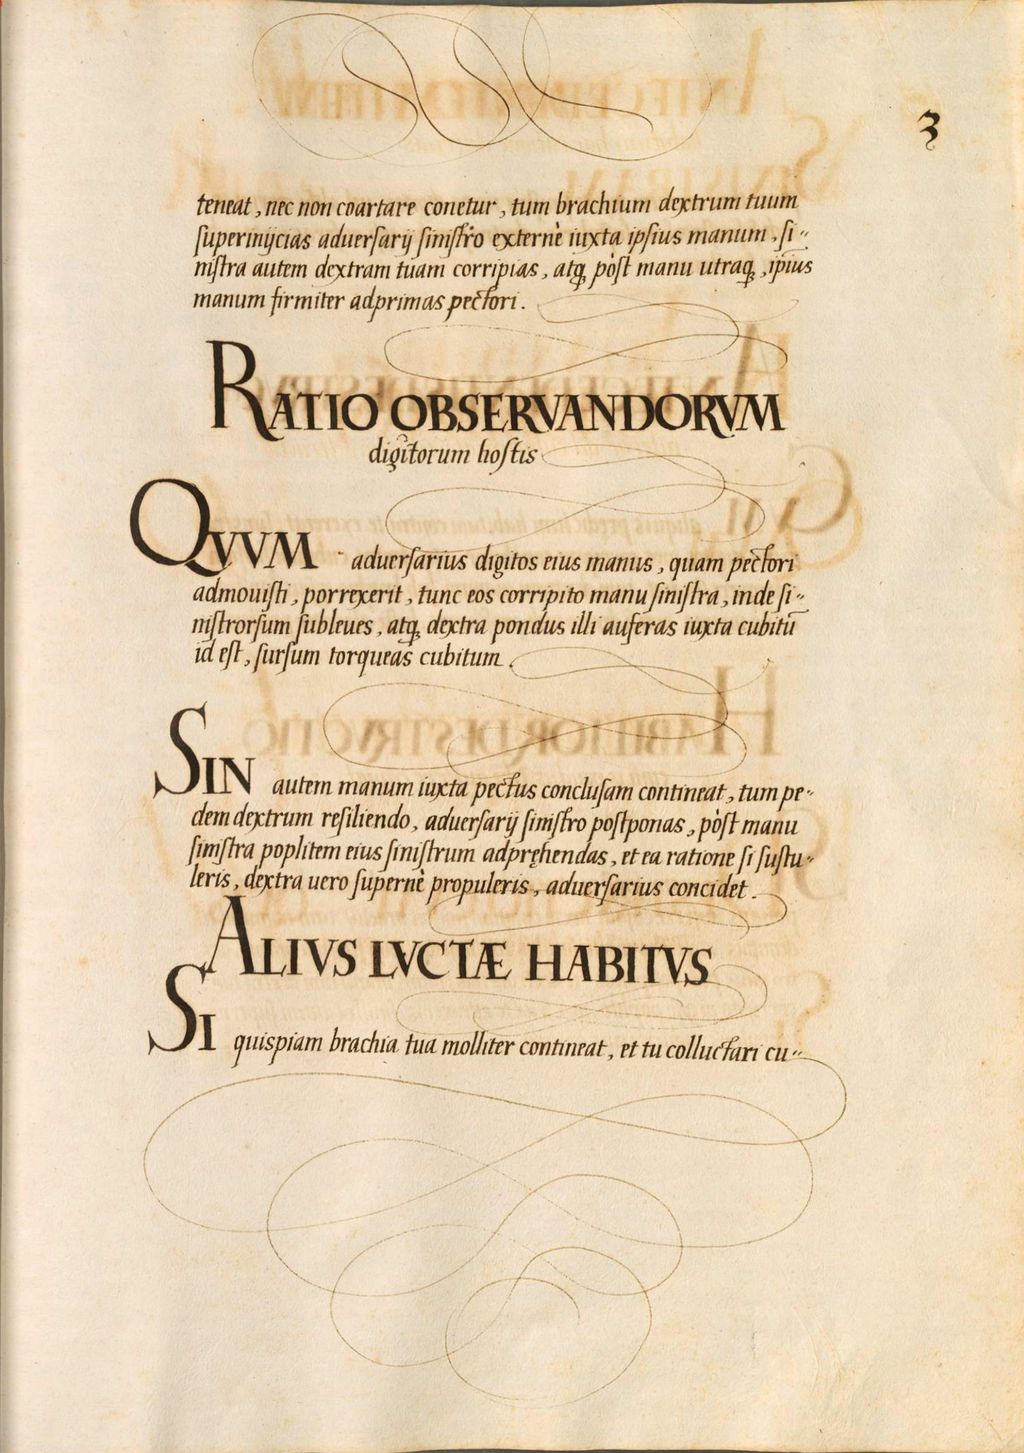 3
teneat, nec non coartare conetur, tum brachium dextrum tuum
superinijcias aduersarij sinistro externè iuxta ipsius manum, si„
nistra autem dextram tuam corripias, atq; pòst manu utraq;, ipius
manum firmiter adprimas pectori.
RATIO OBSERVANDORVM
digitorum hostis
QVVM aduersarius digitos eius manus, quam pectori
admouisti, porrexerit, tunc eos corripito manu sinistra, inde si„
nistrorsum subleues, atq; dextra pondus illi auferas iuxta cubitū
id est, sursum torqueas cubitum.
SIN autem manum iuxta pectus conclusam contineat, tum pe„
dem dextrum resiliendo, aduersarij sinistro postponas, pòst manu
sinistra poplitem eius sinistrum adpręhendas, et ea ratione si sustu„
leris, dextra uero supernè propuleris, aduersarius concidet.
ALIVS LVCTÆ HABITVS
SI quispiam brachia tua molliter contineat, et tu colluctari cu„